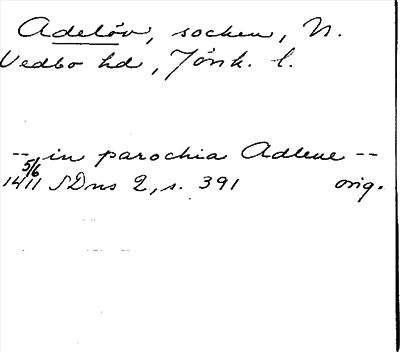 Adelöv, socken, N.
Vedbo hd, Jönk. l.
-- in parochia Adleue --
5/6 1411 SDns 2, s. 391 orig.